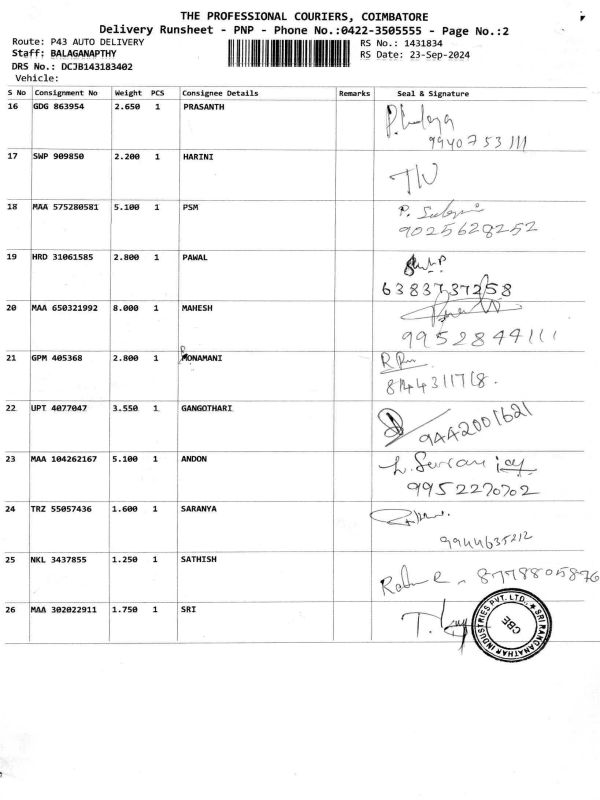 THE PROFESSIONAL COURIERS, COIMBATORE
Delivery Runsheet - PNP - Phone No.:0422-3505555 - Page No.:2
Route: P43 AUTO DELIVERY RS No.: 1431834
Staff: BALAGANAPTHY RS Date: 23-Sep-2024
DRS No.: DCJB143183402
Vehicle:
S No Consignment No Weight PCS Consignee Details Remarks Seal & Signature
16 GDG 863954 2.650 1 PRASANTH
9940753111
17 SWP 909850 2.200 1 HARINI
18 MAA 575280581 5.100 1 PSM
9025628252
19 HRD 31061585 2.800 1 PAWAL
6383737258
20 MAA 650321992 8.000 1 MAHESH
9952844111
21 GPM 405368 2.800 1 PONAMANI
8144311718.
22 UPT 4077047 3.550 1 GANGOTHARI
9442001621
23 MAA 104262167 5.100 1 ANDON
9952270702
24 TRZ 55057436 1.600 1 SARANYA
9944635212
25 NKL 3437855 1.250 1 SATHISH
8778805876
26 MAA 302022911 1.750 1 SRI
SRI RANGANATHAR INDUSTRIES PVT. LTD.,
CBE